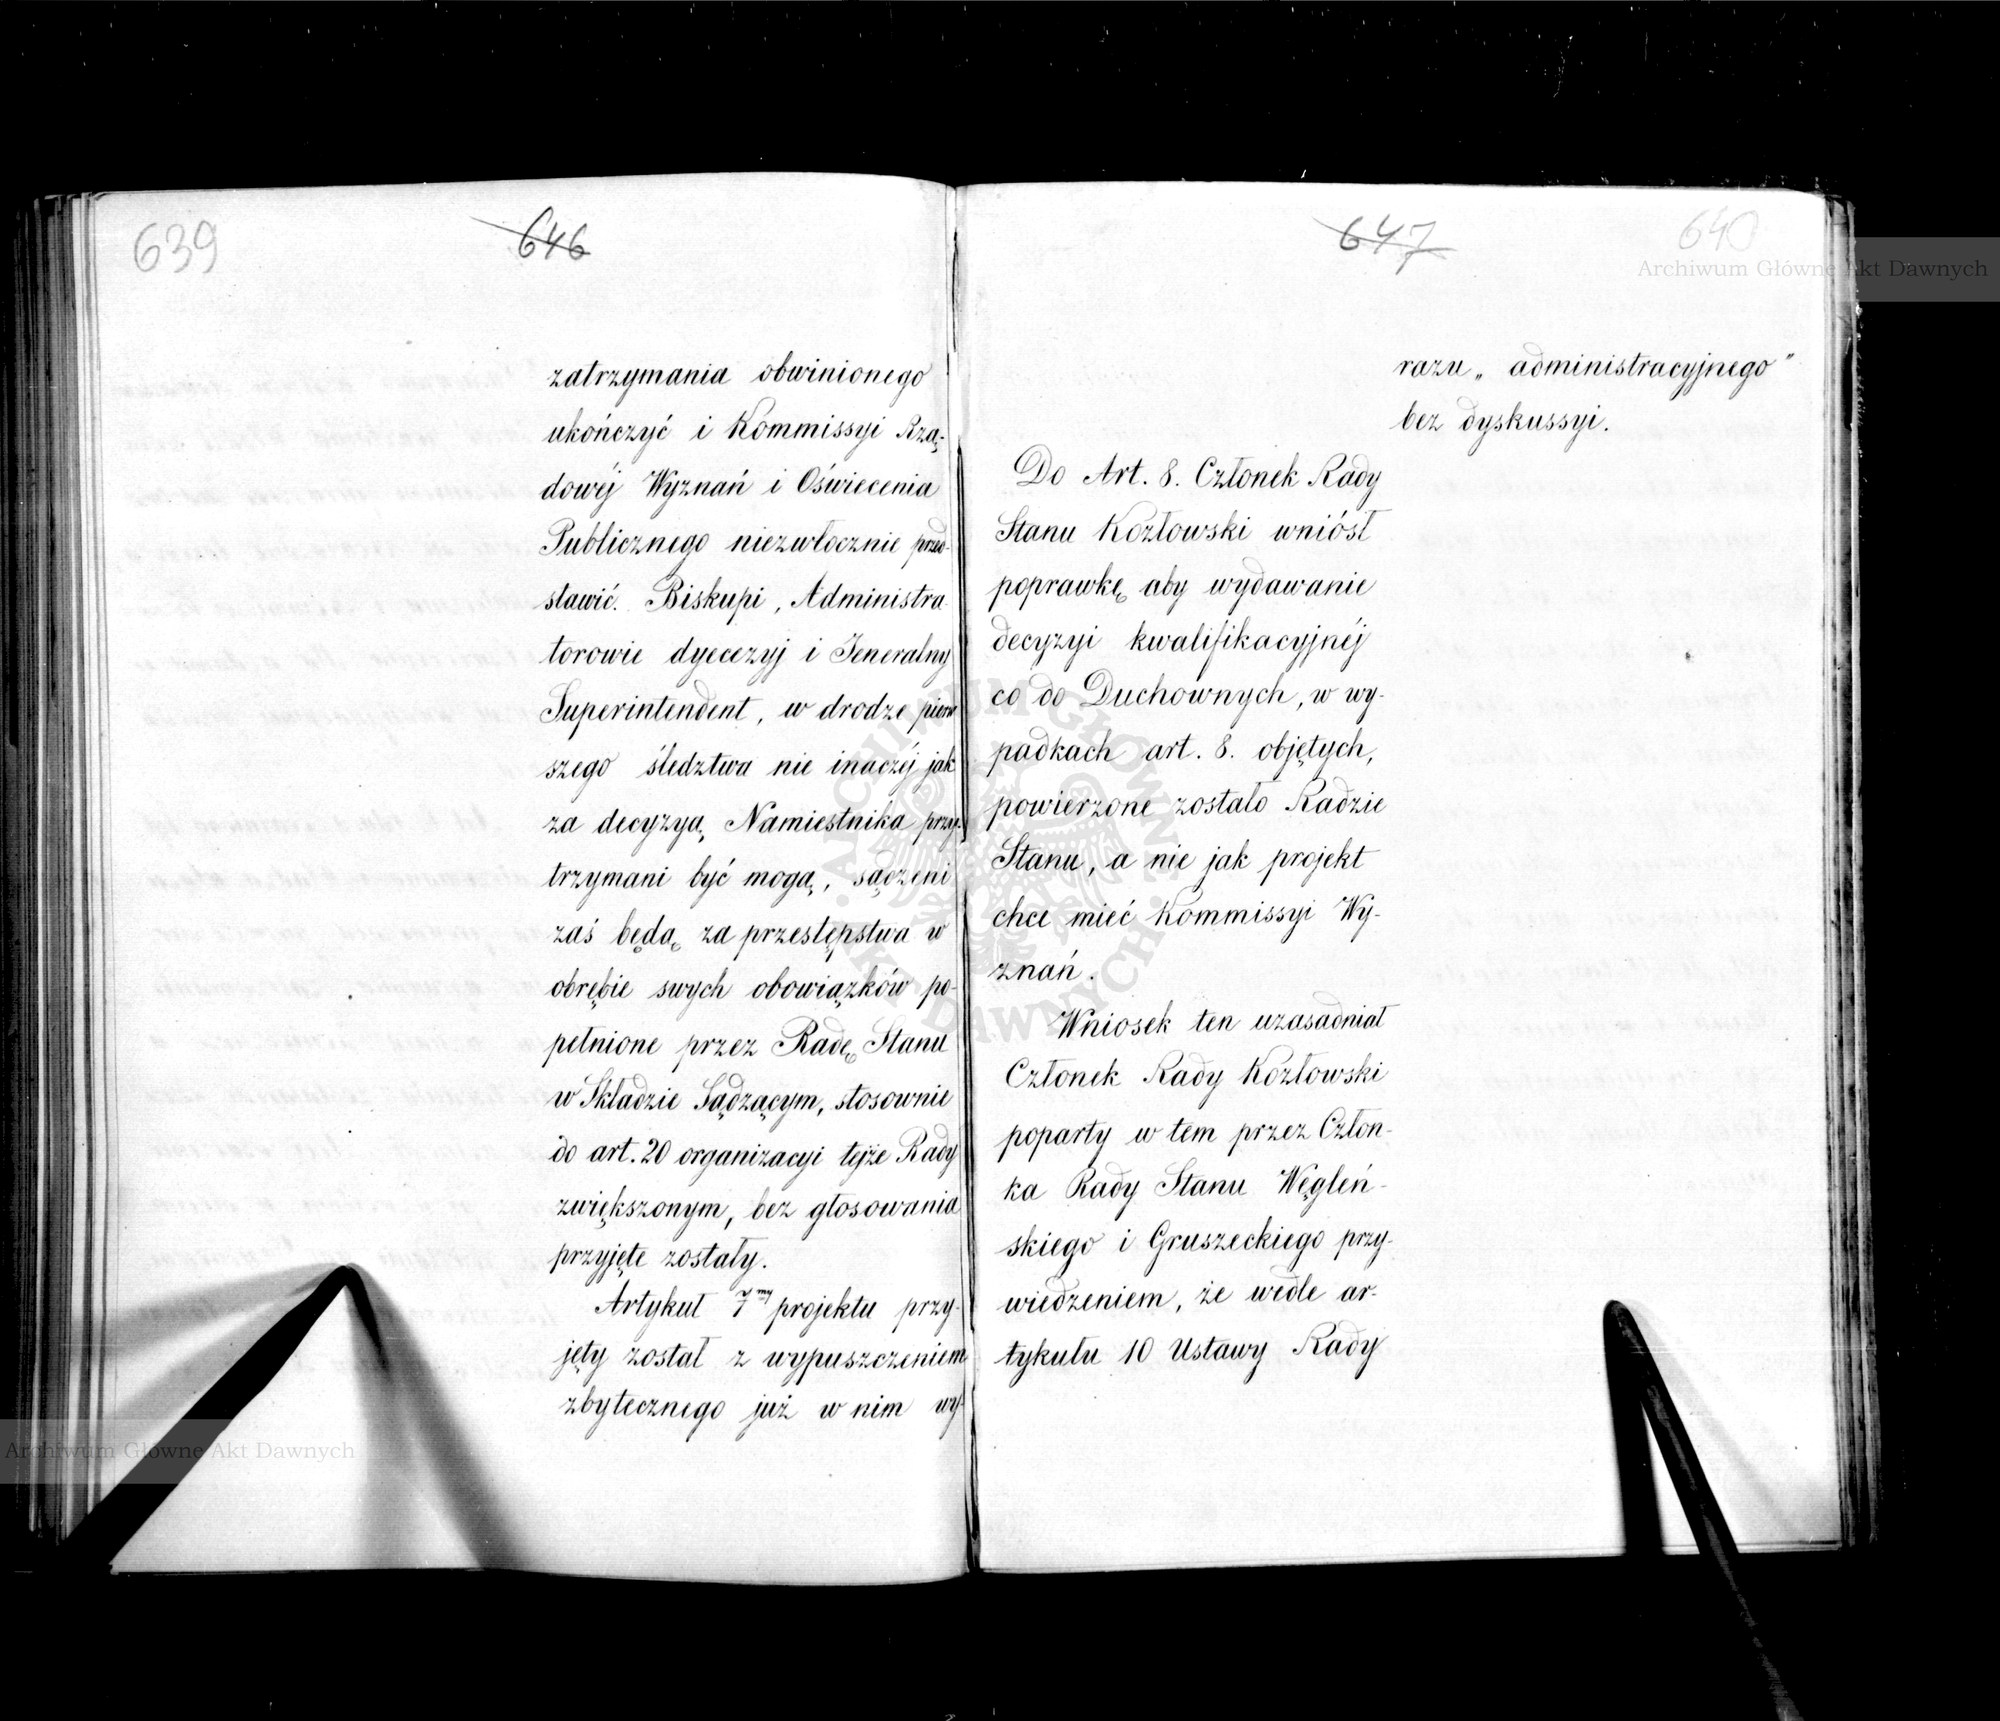 639
646
zatrzymania obwinionego
ukończyć i Kommissyi Rzą-
dowéj Wyznań i Oświecenia
Publicznego niezwłocznie przed-
stawić. Biskupi, Administra-
torowie dyecezyj i Jeneralny
Superintendent, w drodze pierw
szego śledztwa nie inaczéj jak
za decyzyą Namiestnika przy-
trzymani być mogą, sądzeni
zaś będą za przestępstwa w
obrębie swych obowiązków po-
pełnione przez Radę Stanu
w Składzie Sądzącym, stosownie
do art. 20 organizacyi tejże Rady
zwiększonym, bez głosowania
przyjęte zostały.
Artykuł 7my projektu przy-
jęty został z wypuszczeniem
zbytecznego już w nim wy-
647
640
razu „administracyjnego”
bez dyskussyi.
Do Art. 8. Członek Rady
Stanu Kozłowski wniósł
poprawkę aby wydawanie
decyzyi kwalifikacyjnéj
co do Duchownych, w wy-
padkach art. 8. objętych,
powierzone zostało Radzie
Stanu, a nie jak projekt
chce mieć Kommissyi Wy-
znań.
Wniosek ten uzasadniał
Członek Rady Kozłowski
poparty w tem przez Człon-
ka Rady Stanu Węgleń-
skiego i Gruszeckiego przy-
wiedzeniem, że wedle ar-
tykułu 10 Ustawy Rady
Archiwum Główne Akt Dawnych
Archiwum Główne Akt Dawnych
ARCHIWUM GŁÓWNE AKT DAWNYCH